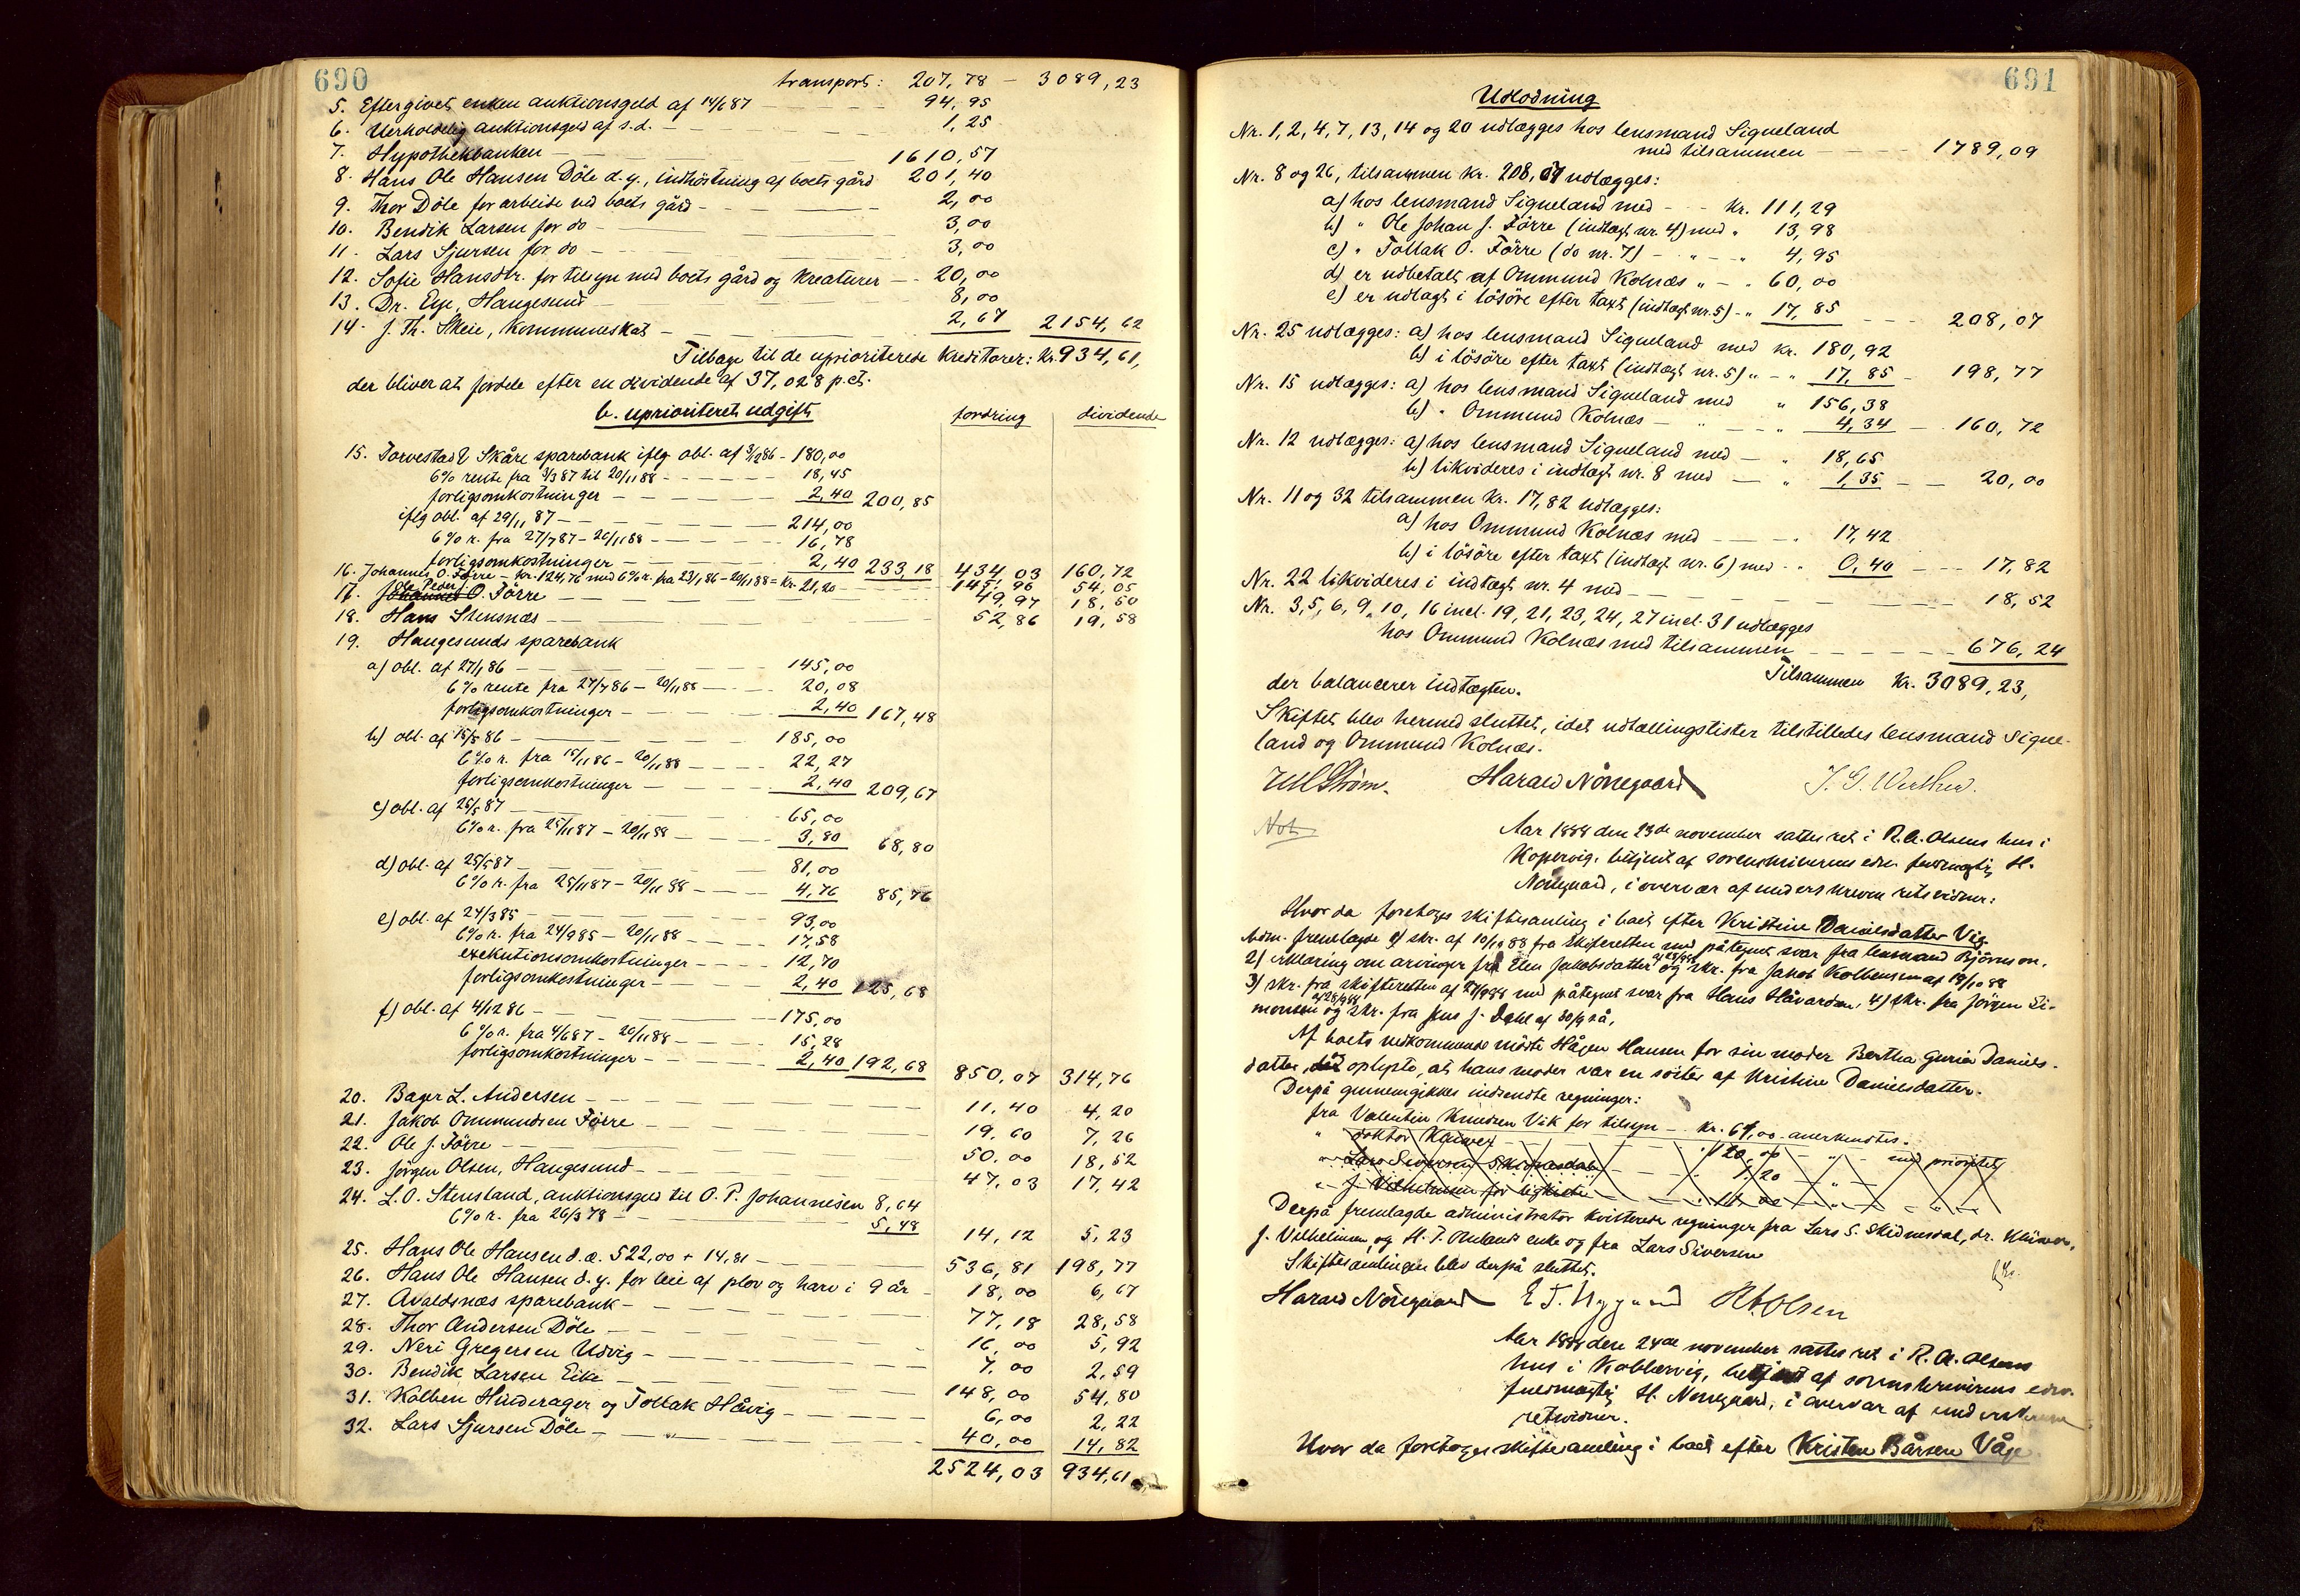 690
transport: 207,78 – 3089,23
5. Eftergivet enken auktionsgeld af 14/6 87 – 94,95
6. Uerholdelig auktionsgeld af s.d. – 1,25
7. Hypothekbanken – 1610,57
8. Hans Ole Hansen Døle d.y., indhöstning af boets gård 201,40
9. Thor Döle for arbeide ved boets gård – 2,00
10. Bendik Larsen for do – 3,00
11. Lars Sjursen for do – 3,00
12. Sofie Hansdtr. for tilsyn med boets gård og kreaturer – 20,00
13. Dr. Eye, Haugesund – 8,00
14. J. Th. Skeie, kommuneskat – 2,67 2154,62
Tilbage til de uprioriterede kreditorer: kr. 934,61,
der bliver at fordele efter en dividende af 37,028 p.ct.
b. uprioriteret udgift fordring dividende
15. Torvestad & Skåre sparebank iflg obl. af 3/2 86 – 180,00
6% rente fra 3/3 87 til 20/11 88 – 18,45
forligsomkostninger – 2,40 200,85
iflg obl. af 29/11 87 – 214,00
6% r. fra 27/7 87 – 20/11 88 – 16,78
forligsomkostninger – 2,40 233,18 434,03 160,72
16. Johannes O. Förre – kr. 124,76 med 6% r. fra 23/1 86 – 20/11 88 = kr. 21,20 – 145,96 54,05
17. Ole Peder O. Förre – 49,97 18,50
18. Hans Stensnæs – 52,86 19,58
19. Haugesunds sparebank
a) obl. af 27/1 86 – 145,00
6% rente fra 27/7 86 – 20/11 88 – 20,08
forligsomkostninger – 2,40 167,48
b) obl. af 15/5 86 – 185,00
6% r. fra 15/11 86 – 20/11 88 – 22,27
forligsomkostninger – 2,40 209,67
c) obl. af 25/5 87 – 65,00
6% r. fra 25/11 87 – 20/11 88 – 3,80 68,80
d) obl. af 25/5 87 – 81,00
6% r. fra 25/11 87 – 20/11 88 – 4,76 85,76
e) obl. af 24/3 85 – 93,00
6% r. fra 24/9 85 – 20/11 88 – 17,58
exekutionsomkostninger – 12,70
forligsomkostninger – 2,40 125,68
f) obl. af 4/12 86 – 175,00
6% r. fra 4/6 87 – 20/11 88 – 15,28
forligsomkostninger – 2,40 192,68 850,07 314,76
20. Bager L. Andersen – 11,40 4,20
21. Jakob Ommundsen Förre – 19,60 7,26
22. Ole J. Förre – 50,00 18,52
23. Jörgen Olsen, Haugesund – 47,03 17,42
24. L.O. Stensland, auktionsgeld til O.P. Johannesen 8,64
6% r. fra 26/3 78 – 5,48 14,12 5,23
25. Hans Ole Hansen d.æ. 522,00 + 14,81 – 536,81 198,77
26. Hans Ole Hansen d.y. for leie af plov og harv i 9 år – 18,00 6,67
27. Avaldsnæs sparebank – 77,18 28,58
28. Thor Andersen Döle – 16,00 5,92
29. Neri Gregersen Udvig – 7,00 2,59
30. Bendik Larsen Eike – 148,00 54,80
31. Kolben Hinderager og Tollak Håvig – 6,00 2,22
32. Lars Sjursen Döle – 40,00 14,82
2524,03 934,61
691
Udlodning
Nr. 1, 2, 4, 7, 13, 14 og 20 udlægges hos lensmand Siqueland
med tilsammen – 1789,09
Nr. 8 og 26, tilsammen kr. 208,07 udlægges:
a) hos lensmand Siqueland med – kr. 111,29
b) " Ole Johan J. Förre (indtægt nr. 4) med " 13,98
c) " Tollak O. Förre (do nr. 7) – " – " 4,95
d) er udbetalt af Ommund Kolnæs " – " 60,00
e) er udlagt i lösöre efter taxt (indtægt nr. 5) – " 17,85 – 208,07
Nr. 25 udlægges: a) hos lensmand Siqueland med kr. 180,92
b) i lösöre efter taxt (indtægt nr. 5) " – " 17,85 – 198,77
Nr. 15 udlægges: a) hos lensmand Siqueland med " 156,38
b) " Ommund Kolnæs – " – " 4,34 – 160,72
Nr. 12 udlægges: a) hos lensmand Siqueland med – " 18,65
b) likvideres i indtægt nr. 8 med – " 1,35 – 20,00
Nr. 11 og 32 tilsammen kr. 17,82 udlægges:
a) hos Ommund Kolnæs med – 17,42
b) i lösöre efter taxt (indtægt nr. 6) med – 0,40 – 17,82
Nr. 22 likvideres i indtægt nr. 4 med – 18,52
Nr. 3, 5, 6, 9, 10, 16 incl. 19, 21, 23, 24, 27 incl. 31 udlægges
hos Ommund Kolnæs med tilsammen – 676,24
Tilsammen kr. 3089,23,
der balancerer indtægten.
Skiftet blev hermed sluttet, idet udtællingslister tilstilledes lensmand Sique-
land og Ommund Kolnæs.
Harald Nörregaard
Not
Aar 1888 den 23de november sattes ret i R.A. Olsens hus i
Kopervig, betjent af sorenskriverens edsv. fuldmægtig H.
Nörregaard, i overvær af underskrevne retsvidner:
Hvor da foretoges skiftesamling i boet efter Kristine Danielsdatter Vig.
Adm. fremlagde 1) skr. af 10/10 88 fra skifteretten med påtegnet svar fra lensmand Björnson.
2) erklæring om arvinger fra Elen Jakobsdatter og skr. fra Jakob Kolbensen af 19/10 88
3) skr. fra skifteretten af 27/9 88 med påtegnet svar fra Hans Håvardsen, 4) skr. fra Jörgen Si-
monsen af 28/9 88 og skr. fra Jens J. Dahl af 30/9 s.å.
Af boets vedkommende mödte Hågen Hansen for sin moder Bertha Guria Daniels-
datter, oplyste, at hans moder var en söster af Kristine Danielsdatter.
Derpå gjennemgikkes indsendte regninger:
fra Valentin Knudsen Vik for tilsyn – kr. 61,00 anerkendtes.
" doktor Kaurez – 120,00 – " – med prioritet
" Lars Sivertsen Skidnesdal – 1,20 – " –
" J. Vilhelmsen for ligkiste –
Derpå fremlagde administrator kvitterede regninger fra Lars S. Skidnesdal, dr. Kaurez,
J. Vilhelmsen, og H.T. enke og fra Lars Siversen
Skiftesamlingen blev derpå sluttet.
Harald Nörregaard E T. Nygaard R A Olsen
Aar 1888 den 24de november sattes ret i R.A. Olsens
hus i Kobbervig, betjent af sorenskriverens edsv.
fuldmægtig H. Nörregaard, i overvær af underskrevne
retsvidner.
Hvor da foretoges skiftesamling i boet efter Kristen Bårsen Våge